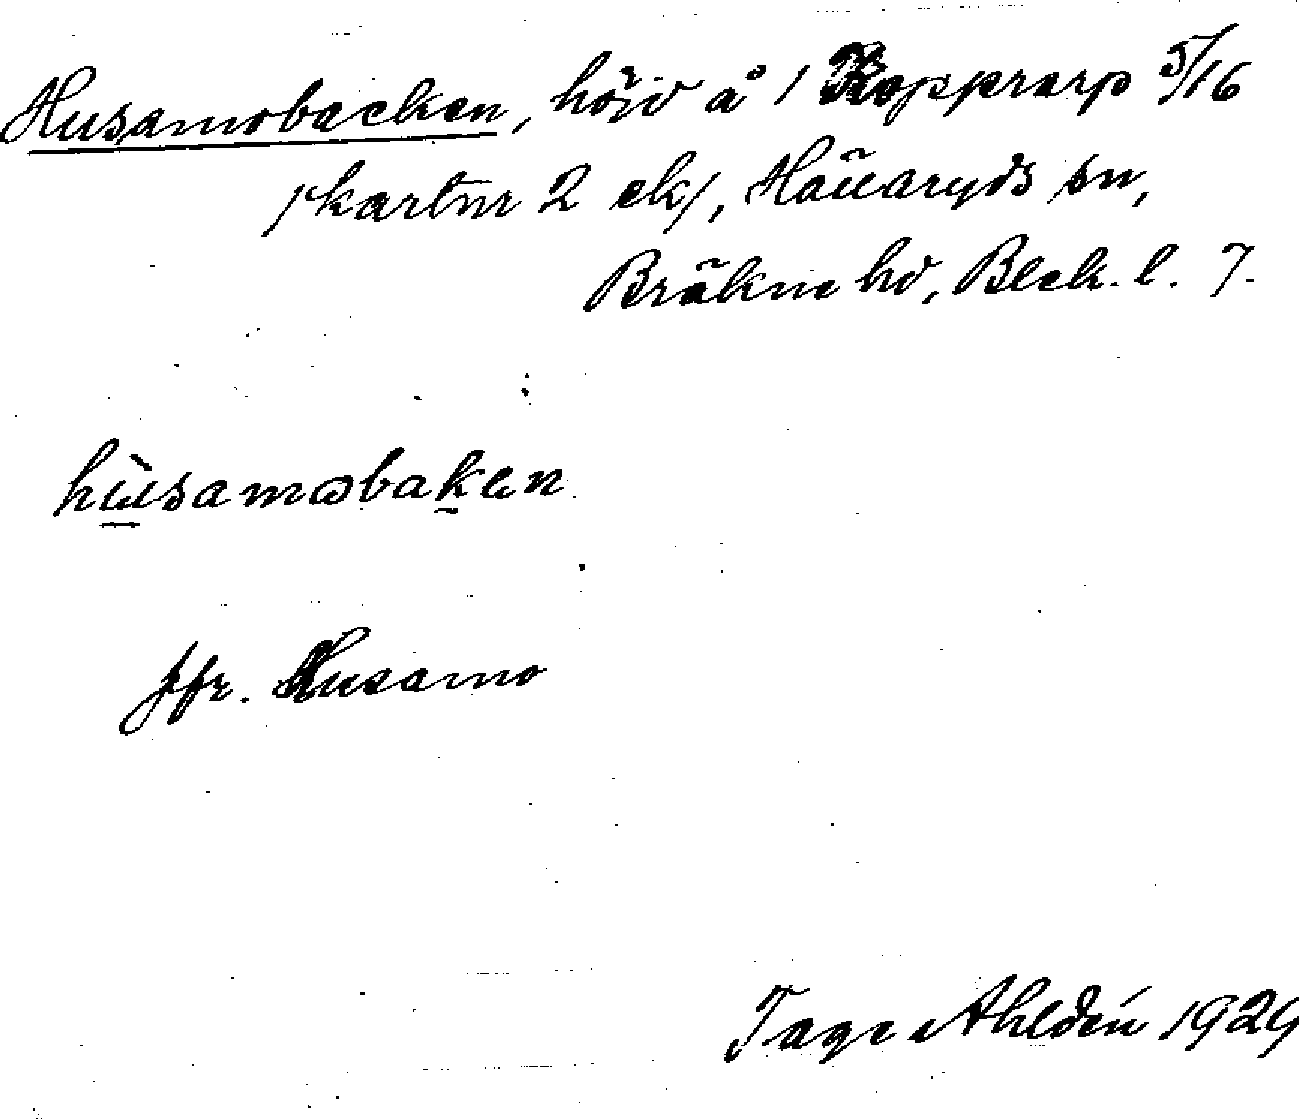 Husamobacken, höjd å 1 Kopprarp 5/16
/kartnr 2 ek/, Hällaryds sn,
Bräkne hd, Blek. l. 7.
hùsamωbaken
Jfr. Husamo
Tage Ahldén 1929